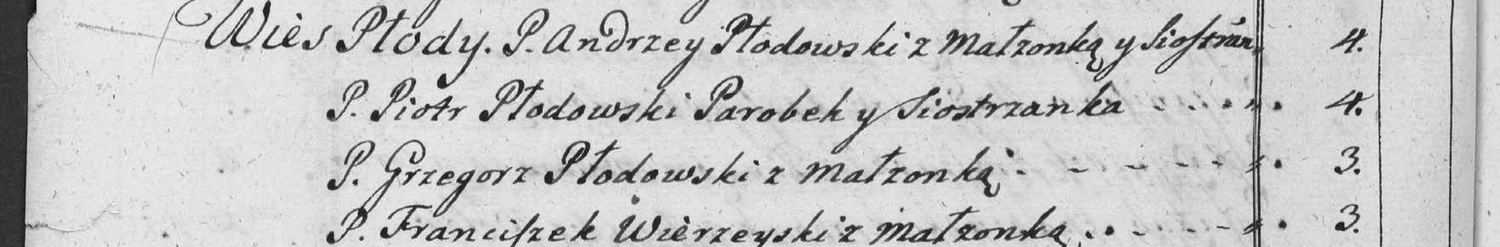 Wieś Płody. P. Andrzey Płodowski z Małżonką y Siostrzan. 4.
P. Piotr Płodowski Parobek y Siostrzanka . . . . . . 4.
P. Grzegorz Płodowski z Małżonką . - - - - - . 3.
P. Franciszek Wierzeyski z Małżonką . . . - - - . 3.